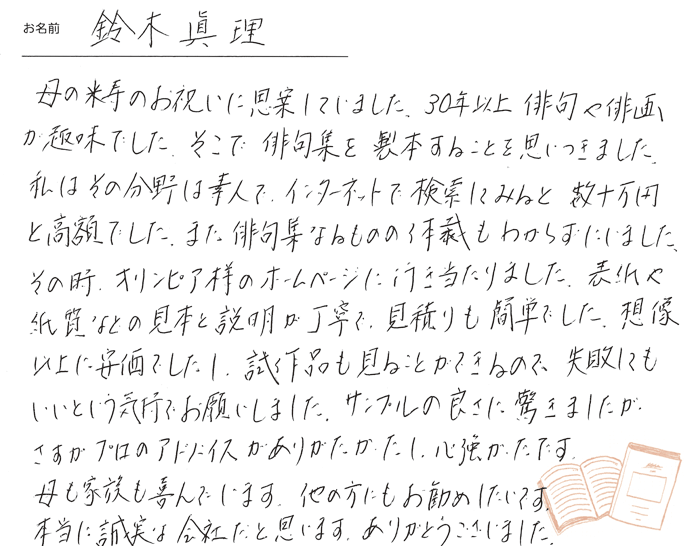 お名前 鈴木眞理
母の米寿のお祝いに思案していました。30年以上俳句や俳画
が趣味でした。そこで俳句集を製本することを思いつきました。
私はその分野は素人で、インターネットで検索してみると数十万円
と高額でした。また俳句集なるものの体裁もわからずにいました。
その時、オリンピア様のホームページに行き当たりました。表紙や
紙質などの見本と説明が丁寧で、見積りも簡単でした。想像
以上に安価でしたし、試作品も見ることができるので、失敗しても
いいという気持でお願いしました。サンプルの良さに驚きましたが、
さすがプロのアドバイスがありがたかったし、心強かったです。
母も家族も喜んでいます。他の方にもお勧めしたいです。
本当に誠実な会社だと思います。ありがとうございました。